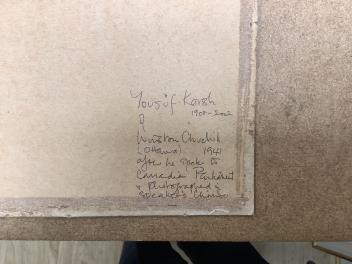 Yousuf Karsh
1908-2002
of
Winston Churchill
(Ottawa) 1941
after he spoke to
Canadian Parliament
& photographed in
Speaker's Chamber